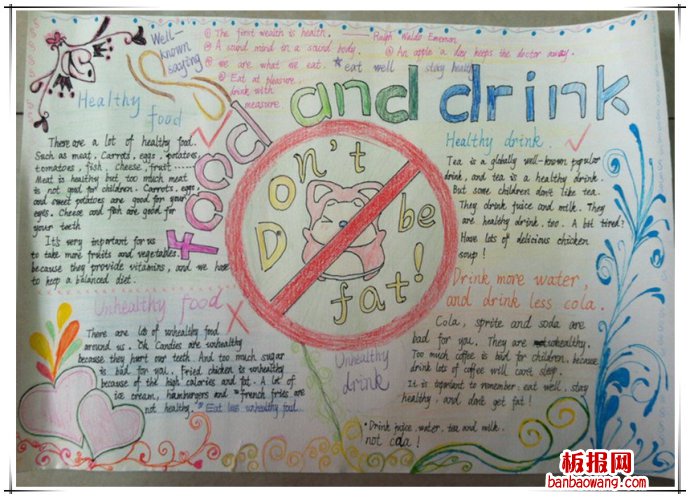 Well-
known
saying
◎ The first wealth is health. —— Ralph Waldo Emerson
◎ A sound mind in a sound body.
◎ An apple a day keeps the doctor away.
◎ we are what we eat.
★eat well stay healthy
◎ Eat at pleasure.
drink with
measure.
food and drink
Healthy
food
There are a lot of healthy food.
Such as meat. Carrots, eggs, potatoes,
tomatoes, fish. Cheese, fruit
Meat is healthy but too much meat
is not good for children. Carrots, eggs,
and sweet potatoes are good for your
eyes. Cheese and fish are good for
your teeth
It's very important for us
to take more fruits and vegetables.
because they provide vitamins, and we have
to keep a balanced diet.
Unhealthy food
There are lots of unhealthy food
around us. Candies are unhealthy
because they hurt our teeth. And too much sugar
is bad for you. Fried chicken is unhealthy
because of the high calories and fat. A lot of
ice cream, hamburgers and french fries are
not healthy. Eat less unhealthy food.
Don't
be
fat!
Healthy drink.
Tea is a globally well-known popular
drink, and tea is a healthy drink.
But some children don't like tea.
They drink juice and milk. They
are healthy drink, too. A bit tired?
Have lots of delicious chicken
soup!
Drink more water,
and drink less cola.
Unhealthy
drink
Cola, sprite and soda are
bad for you. They are unhealthy.
Too much coffee is bad for children, because
drink lots of coffee will can't sleep.
It is important to remember: eat well, stay
healthy, and don't get fat!
• Drink juice, water, tea and milk.
not cola!
板报网
banbaowang.com